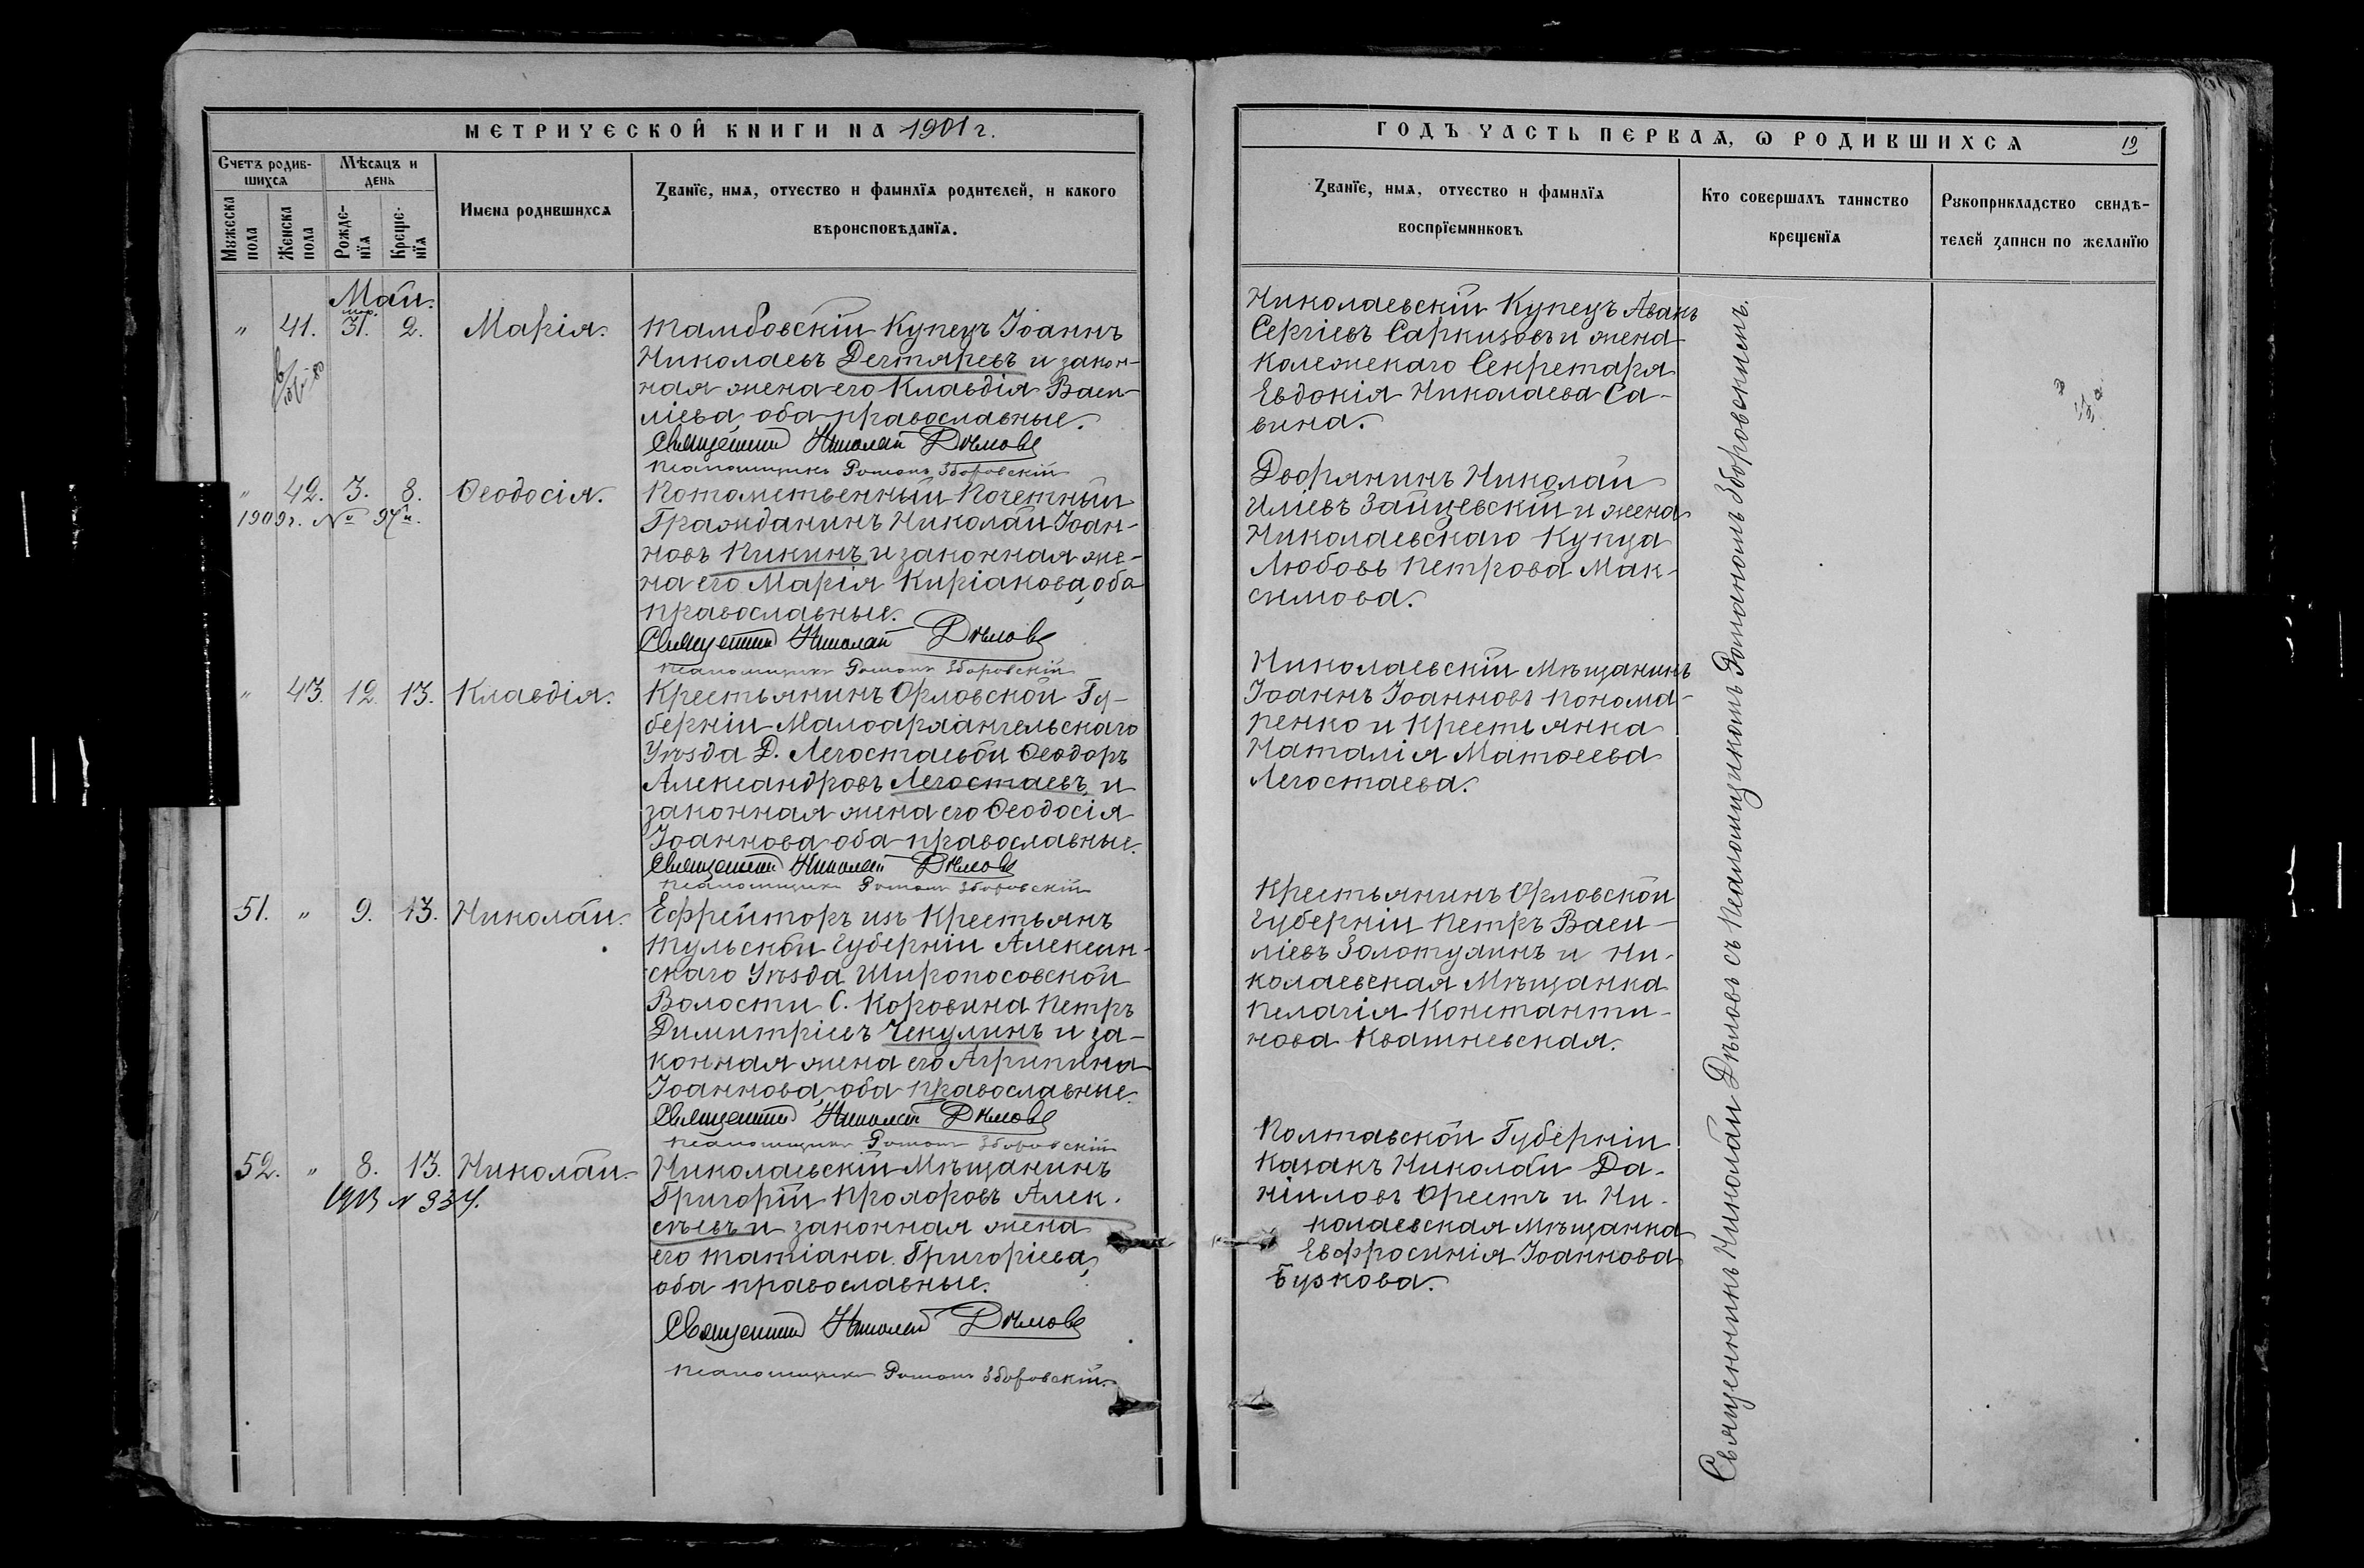 МЕТРИЧЕСКОЙ КНИГИ НА 1901 г.
Счетъ родив-
шихся
Мѣсяцъ и
день
Мужеска
пола
Женска
пола
Рожде-
нїя
Креще-
нїя
Имена родившихся
Званїе, имя, отчество и фамилїя родителей, и какого
вѣроисповѣданїя.
Май.
" 41. Мар. 31. 2. Марія.
Тамбовскій Купецъ Іоаннъ
Николаевъ Дехтяревъ и закон-
ная жена его Клавдія Васи-
ліева, оба православные.
Священникъ Николай Дѣловъ
Псаломщикъ Романъ Зборовскій
" 42. 3. 8. Ѳеодосія.
1909 г. № 97
Потомственный Почетный
Гражданинъ Николай Іоан-
новъ Пикинъ и законная же-
на его Марія Киріакова, оба
православные.
Священникъ Николай Дѣловъ
Псаломщикъ Романъ Зборовскій
" 43. 12. 13. Клавдія.
Крестьянинъ Орловской Гу-
берніи Малоархангельскаго
Уѣзда Д. Легостаевой Ѳеодоръ
Александровъ Легостаевъ и
законная жена его Ѳеодосія
Іоаннова оба православные.
Священникъ Николай Дѣловъ
Псаломщикъ Романъ Зборовскій
51. " 9. 13. Николай.
Ефрейторъ изъ Крестьянъ
Тульской Губерніи Алексин-
скаго Уѣзда Широносовской
Волости С. Коровина Петръ
Димитріевъ Чекулинъ и за-
конная жена его Агрипина
Іоаннова, оба православные.
Священникъ Николай Дѣловъ
Псаломщикъ Романъ Зборовскій
52. " 8. 13. Николай.
1913 N 934.
Николаевскій Мѣщанинъ
Григорій Прохоровъ Алек-
сѣевъ и законная жена
его Татіана Григоріева,
оба православные.
Священникъ Николай Дѣловъ
Псаломщикъ Романъ Зборовскій.
ГОДЪ ЧАСТЬ ПЕРВАЯ, Ѡ РОДИВШИХСЯ
19
Званїе, имя, отчество и фамилїя
воспрїемниковъ
Кто совершалъ таинство
крещенїя
Рукоприкладство свидѣ-
телей записи по желанїю
Николаевскій Купецъ Аванъ
Сергіевъ Саркизовъ и жена
Колежскаго Секретаря
Евдокія Николаева Са-
вина.
Дворянинъ Николай
Иліевъ Зайцевскій и жена
Николаевскаго Купца
Любовь Петрова Мак-
симова.
Николаевскій Мѣщанинъ
Іоаннъ Іоанновъ Понома-
ренко и Крестьянка
Наталія Матѳеева
Легостаева.
Крестьянинъ Орловской
Губерніи Петръ Васи-
ліевъ Золотухинъ и Ни-
колаевская Мѣщанка
Пелагія Константи-
нова Квашневская.
Полтавской Губерніи
Казакъ Николай Да-
ніиловъ Орестъ и Ни-
колаевская Мѣщанка
Евфросинія Іоаннова
Буркова.
Священникъ Николай Дѣловъ съ Псаломщикомъ Романомъ Зборовскимъ.